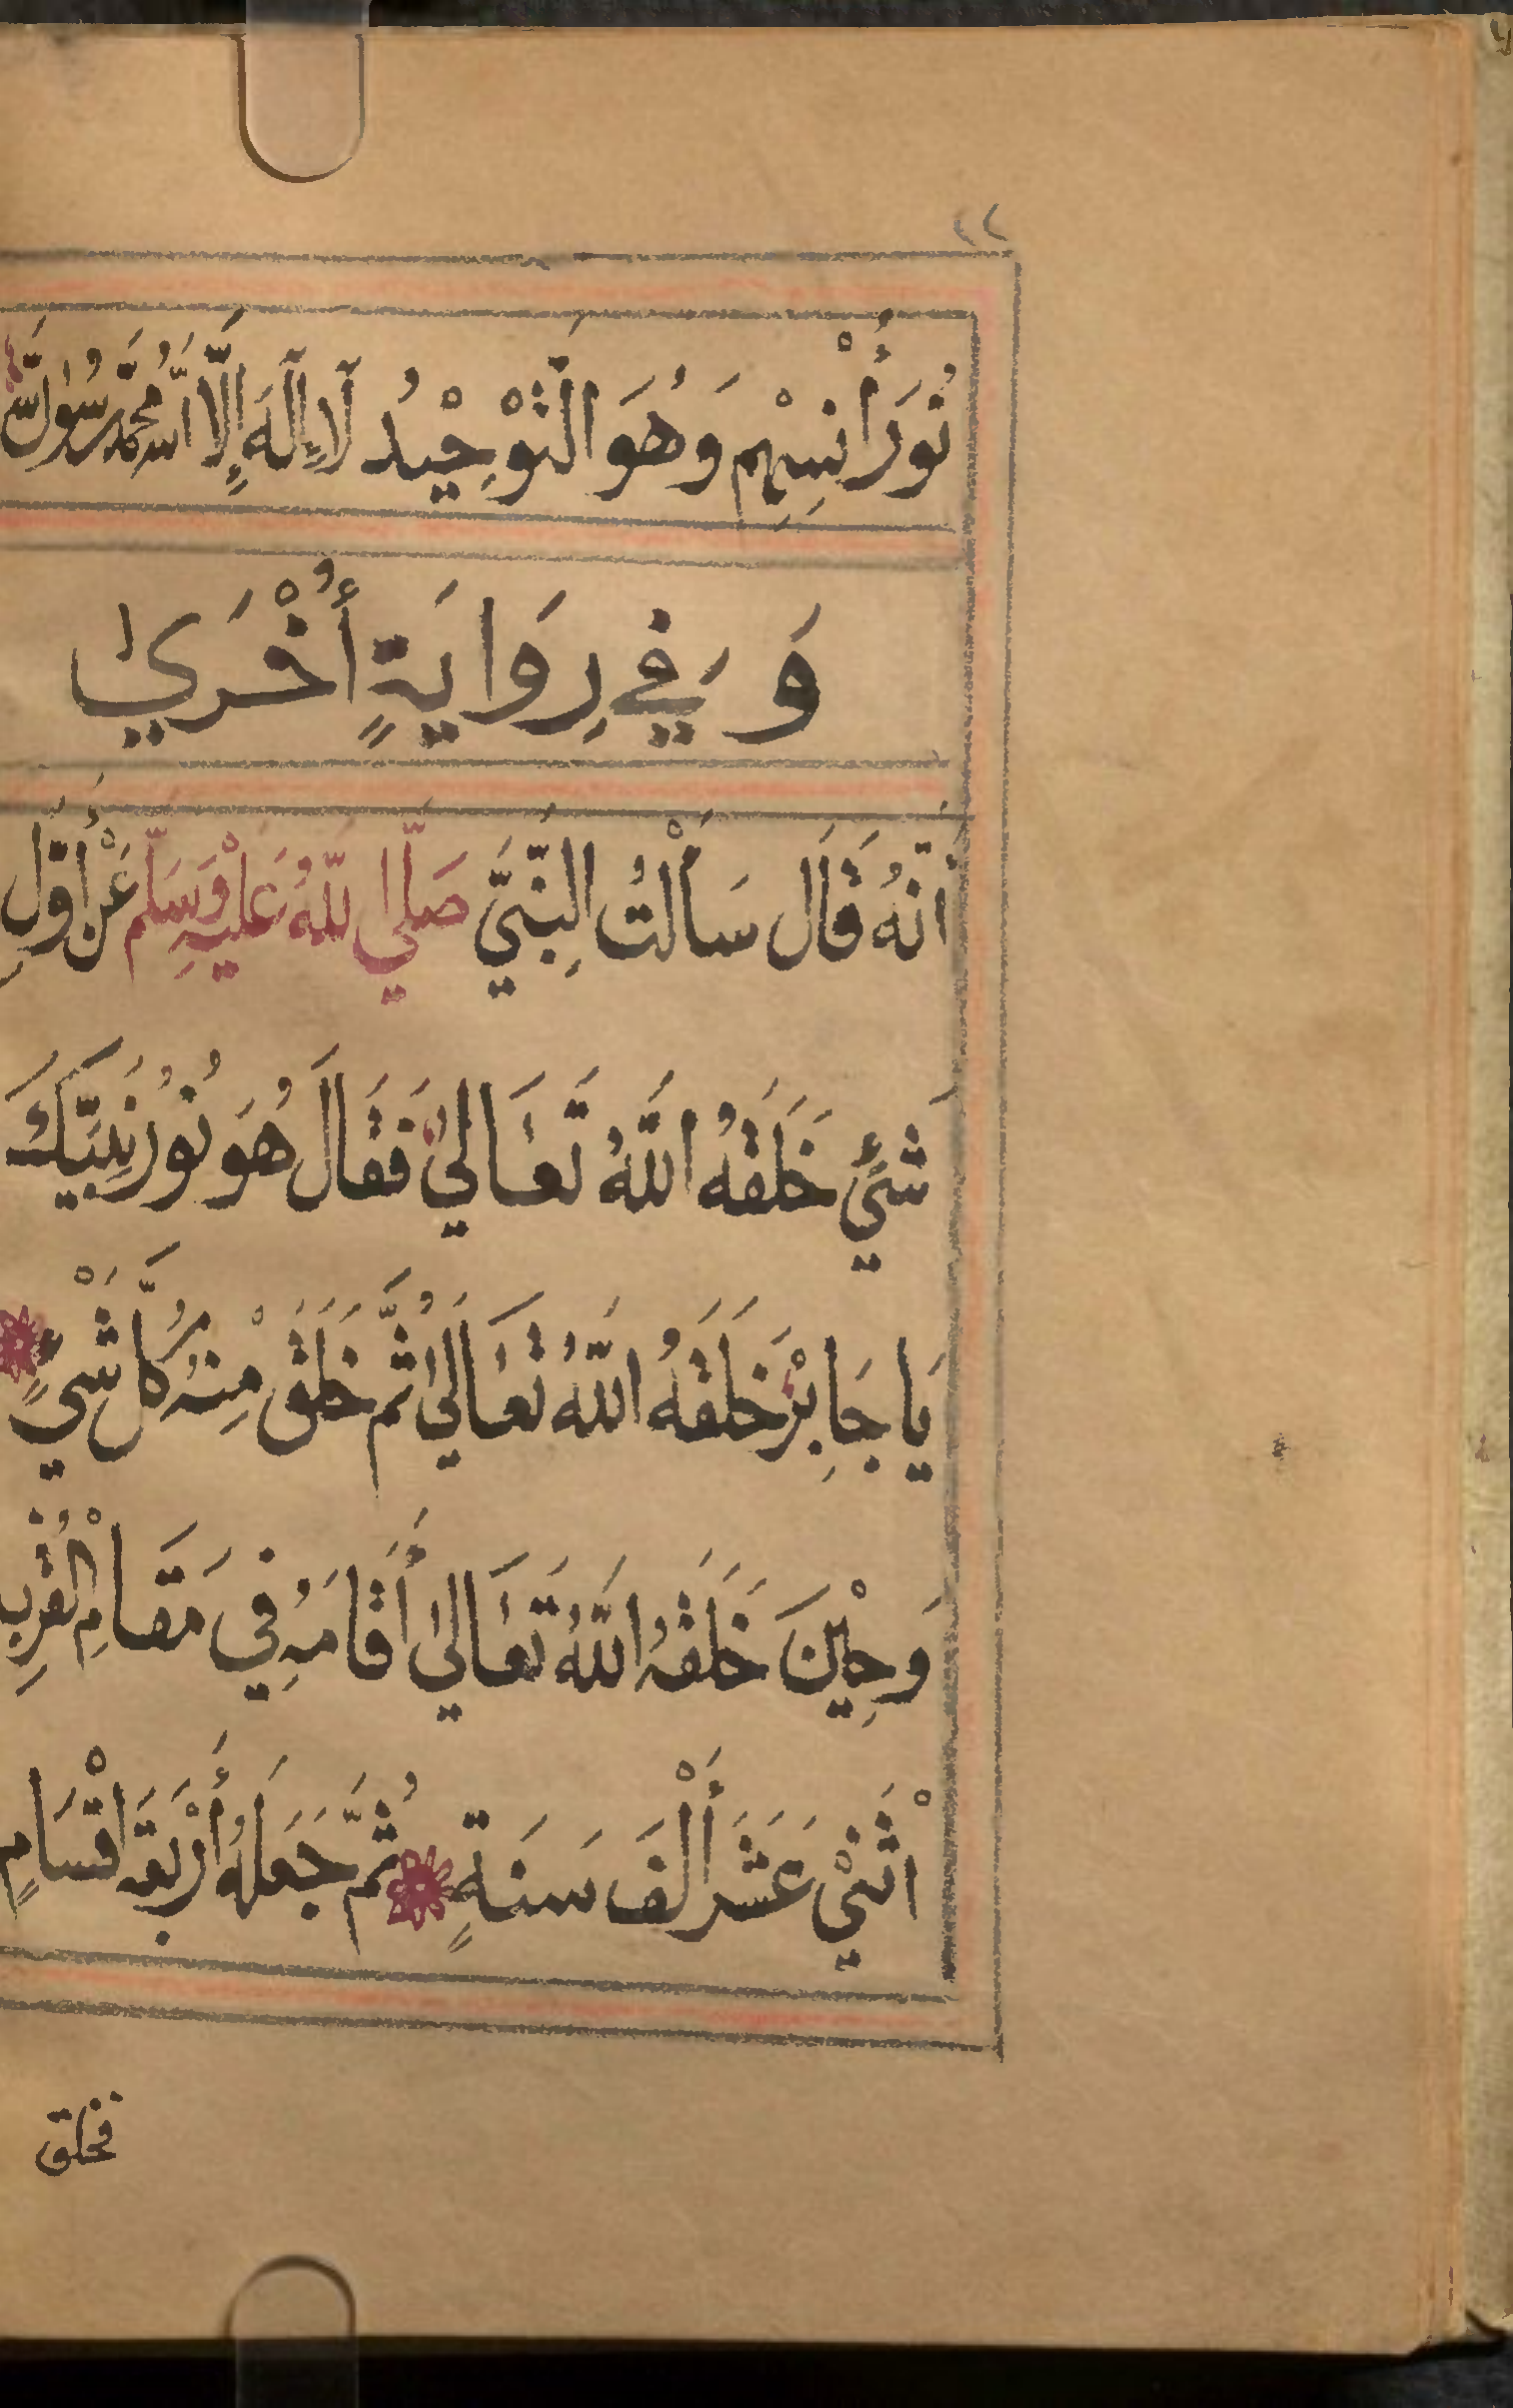 ٤٢
نُورَ أُنْسِهِمْ وَهُوَ التَّوْحِيْدُ لَآ إِلٰهَ إِلَّا اللّٰهُ مُحَمَّدٌ رَسُوْلُ اللّٰهِ
وَ فِي رِوَايَةٍ أُخْرَيٰ
أَنَّهُ قَالَ سَأَلْتُ النَّبِيَّ صَلَّي اللّٰهُ عَلَيْهِ وَسَلَّمَ عَنْ أَوَّلِ
شَيْءٍ خَلَقَهُ اللّٰهُ تَعَالٰي فَقَالَ هُوَ نُوْرُ نَبِيِّكَ
يَا جَابِرُ خَلَقَهُ اللّٰهُ تَعَالٰي ثُمَّ خَلَقَ مِنْهُ كُلَّ شَيْءٍ
وَحِيْنَ خَلَقَهُ اللّٰهُ تَعَالٰي أَقَامَهُ فِي مَقَامِ الْقُرْبِ
اثْنَيْ عَشَرَ أَلْفَ سَنَةٍ ثُمَّ جَعَلَهُ أَرْبَعَةَ اَقْسَامٍ
فخلق